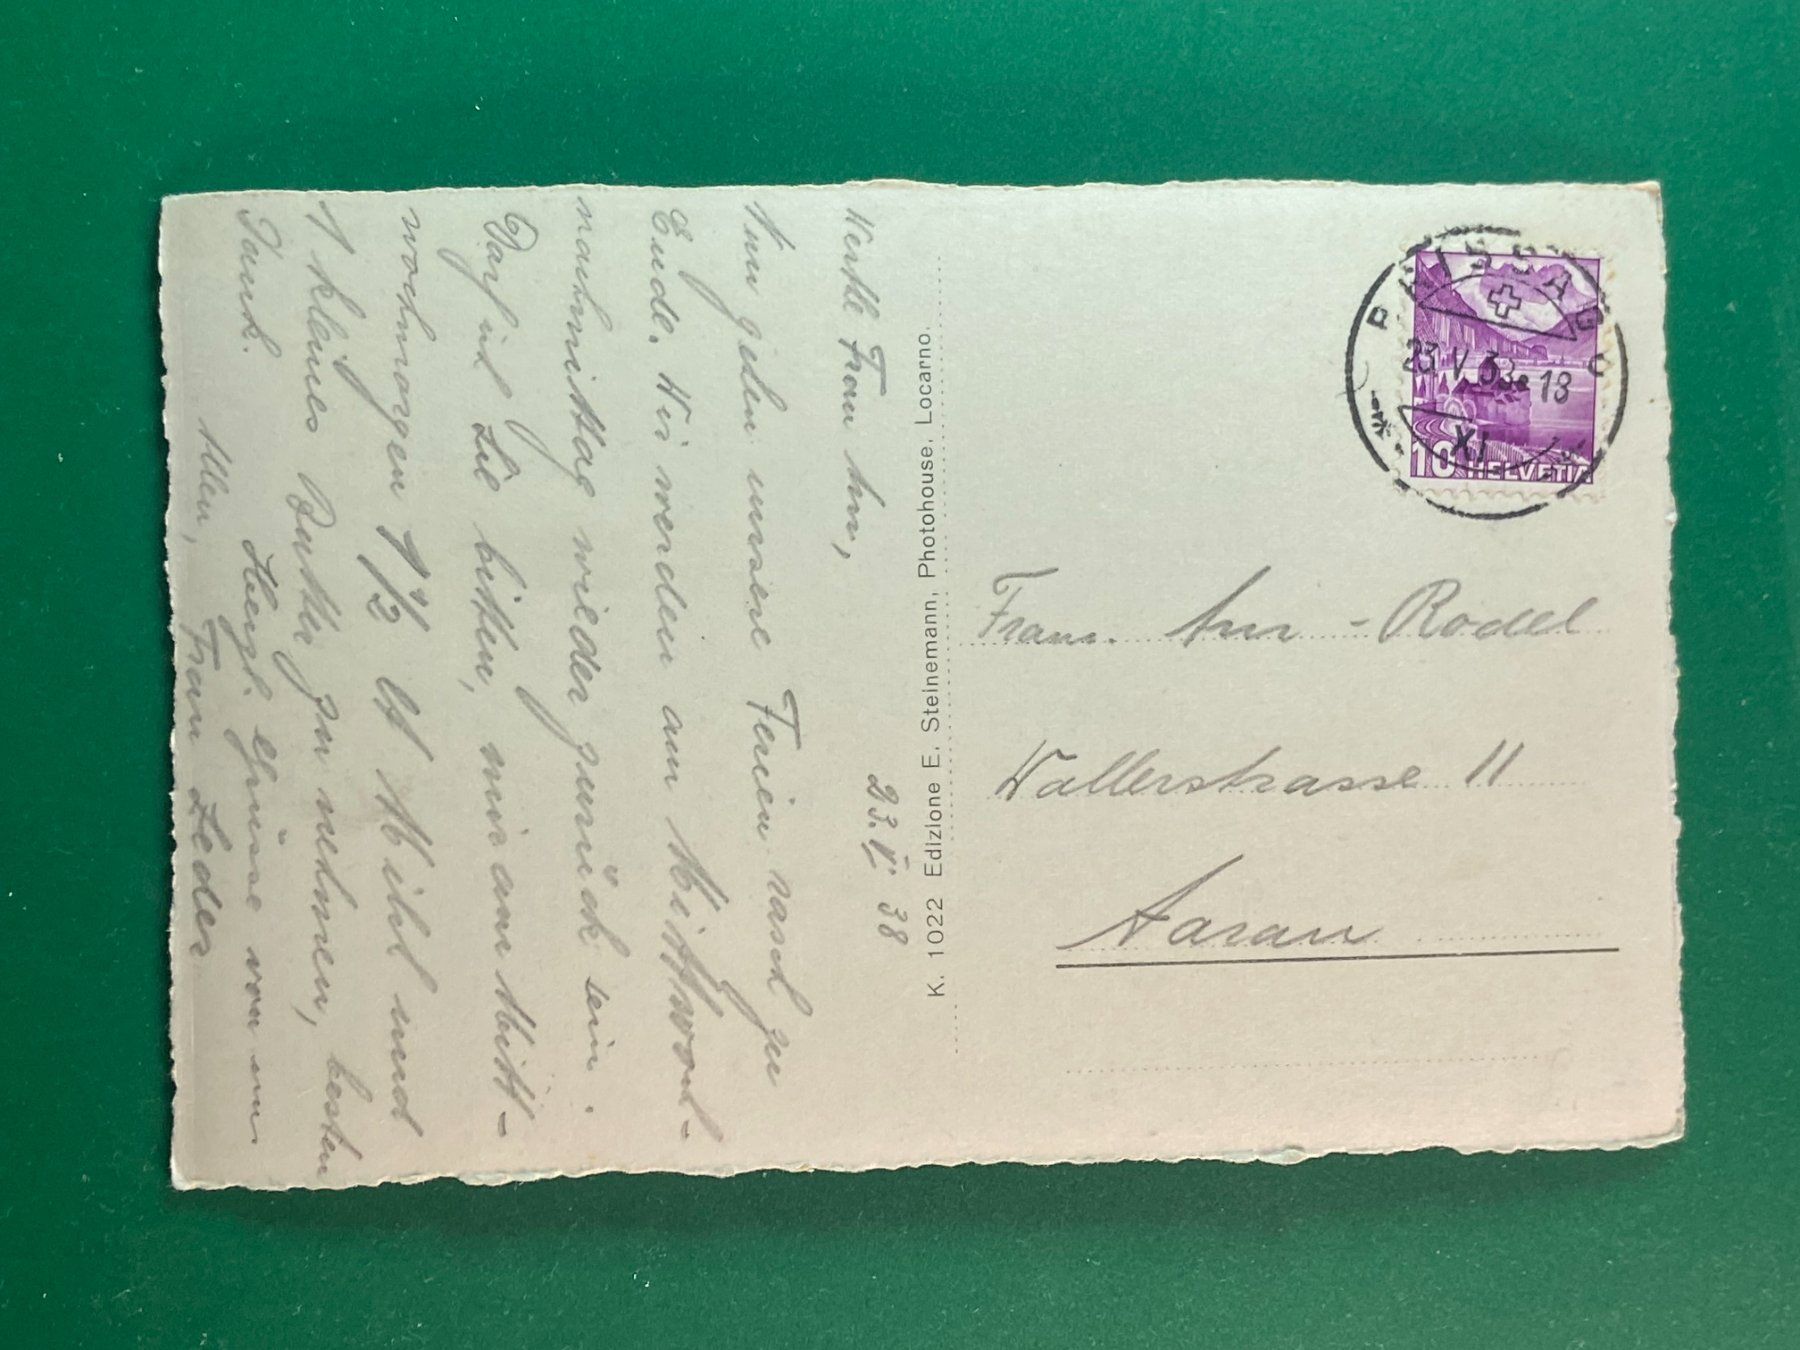 23. V. 38
Werthe Frau Arn,
Nun gehen unsere Ferien rasch zu
Ende. Wir werden am Mittwoch-
nachmittag wieder zurück sein.
Darf ich Sie bitten, mir am Mitt-
wochmorgen 1 1/2 lt Milch und
1 kleines Butter zu nehmen, besten
Dank. Herzl. Grüsse von uns
Allen, Frau Leder
K. 1022 Edizione E. Steinemann, Photohouse, Locarno.
BRISSAGO
23.V.38-18
XI
10 HELVETIA
Frau. Arn - Rodel
Wallerstrasse 11
Aarau